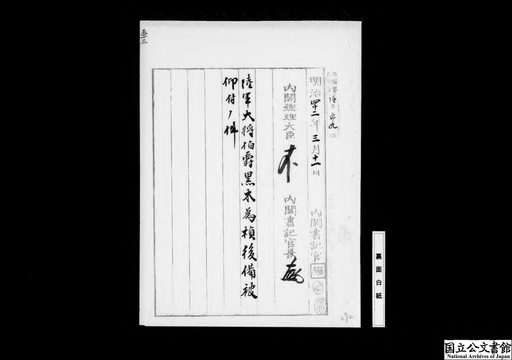 明治四十二年三月十一日
内閣總理大臣
内閣書記官長
内閣書記官
陸軍大將伯爵黒木為楨後備被
仰付ノ件
裏面白紙
国立公文書館
National Archives of Japan